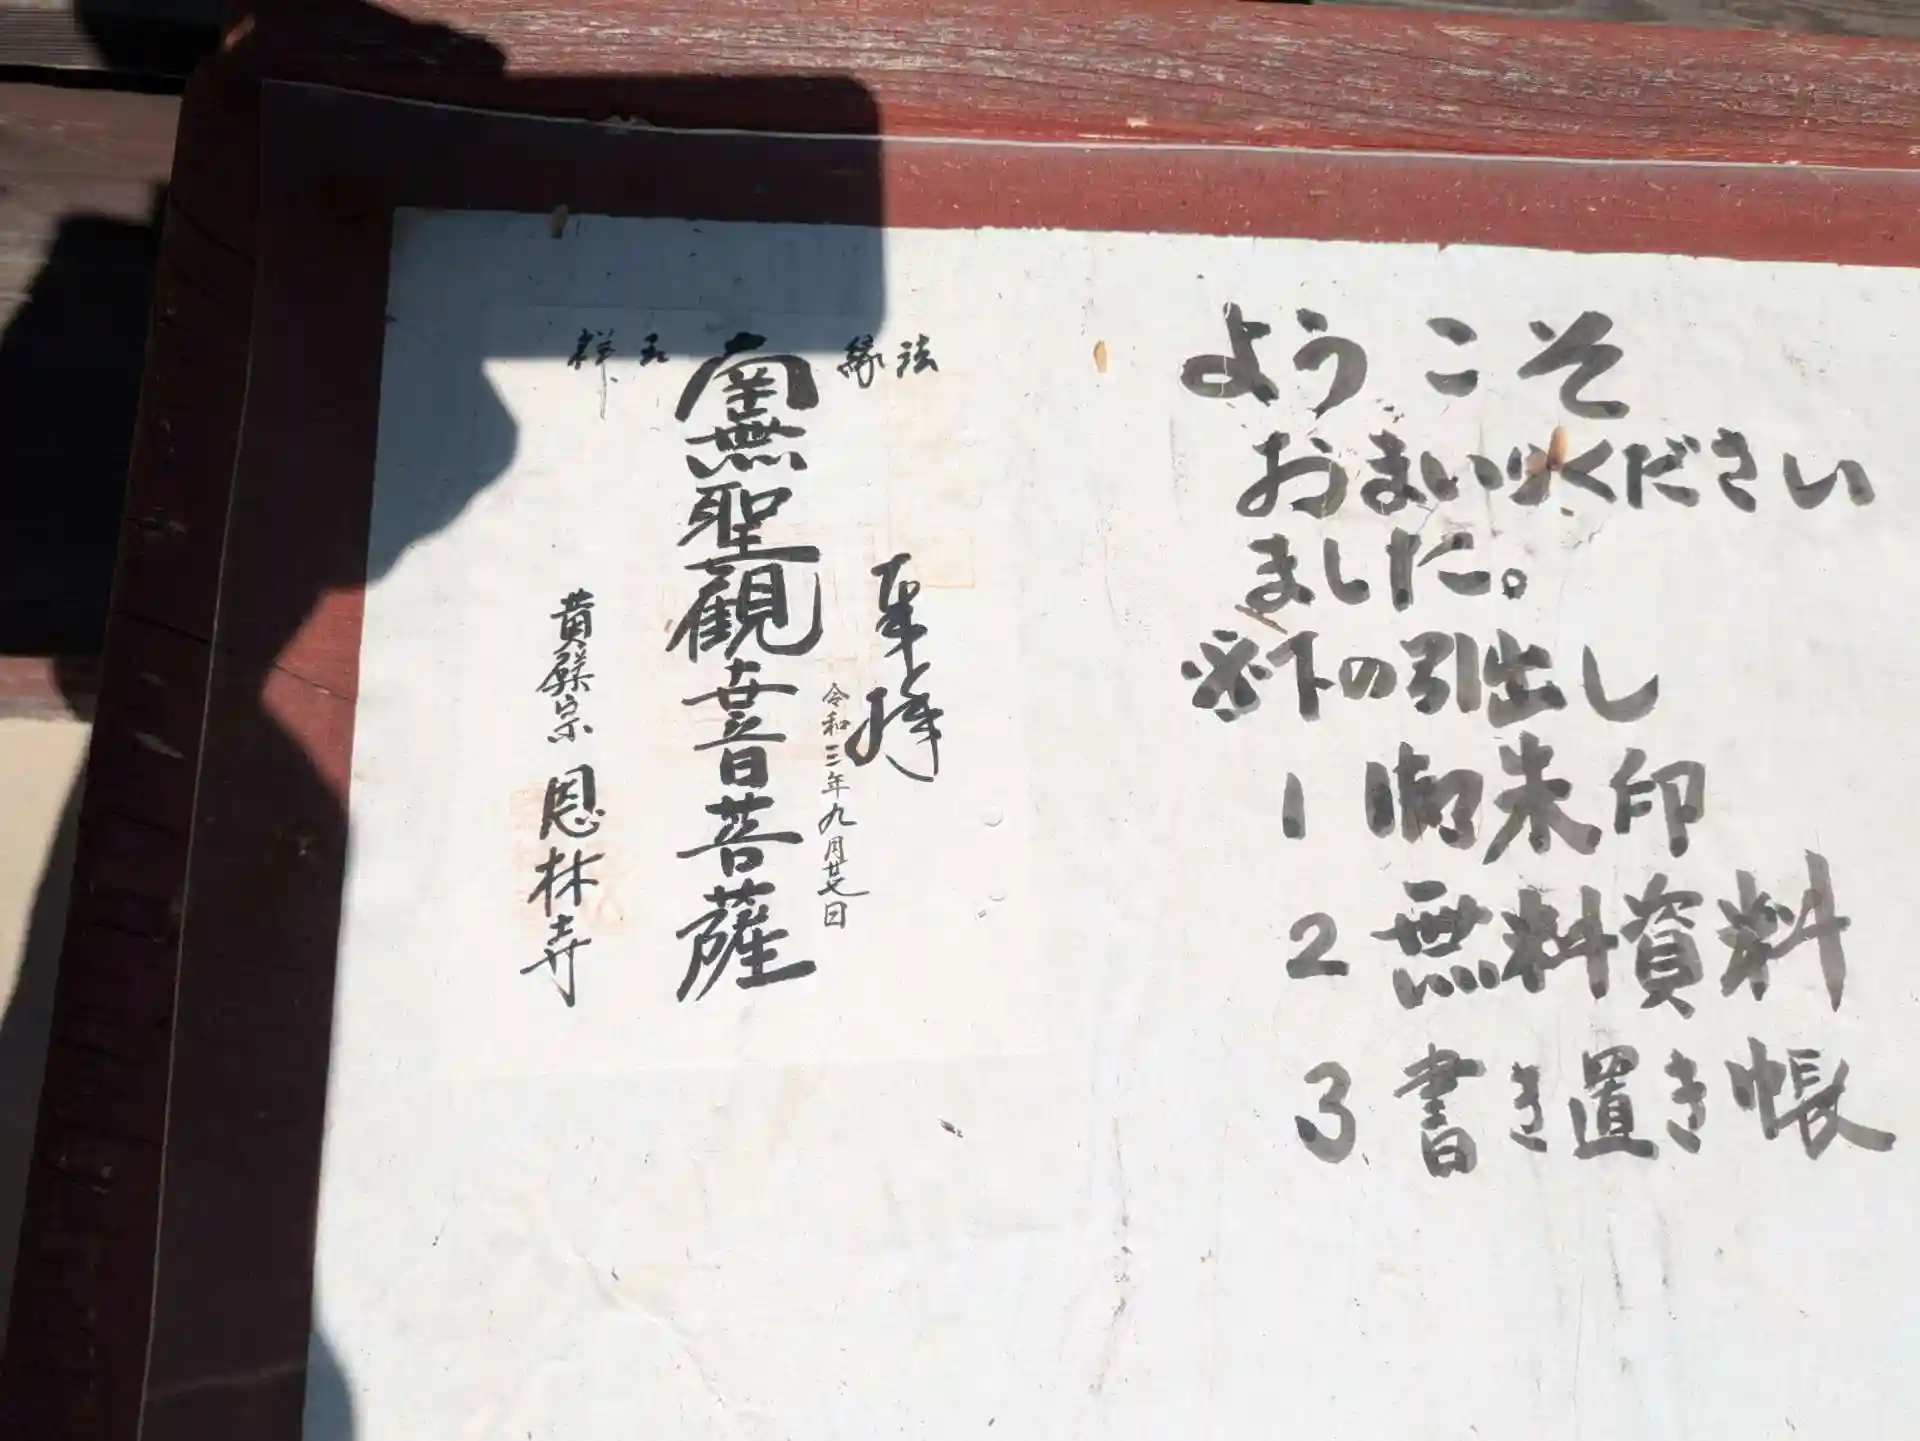 ようこそ
おまいりください
ました。
※下の引出し
1 御朱印
2 無料資料
3 書き置き帳
法縁
奉拝
令和三年九月廿七日
南無聖観世音菩薩
黄檗宗 恩林寺